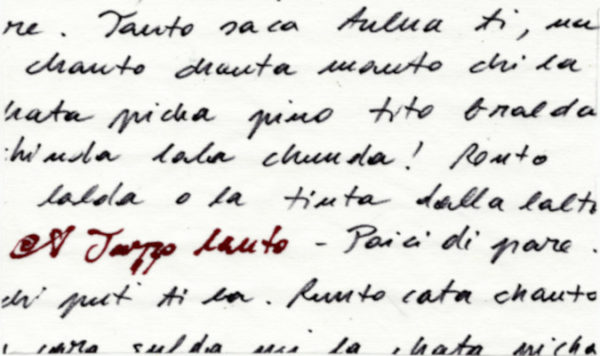 re. Tanto saca Aulua ti, uu
chanto chanta manto chi la
hata picha pino tito Gralda
hinda lala chunda! Ronto
lalda o la tinta dalla lalto
lanto - Poici di pare.
chi puti ti la. Runto cata chanto
sulda mi la chata picha